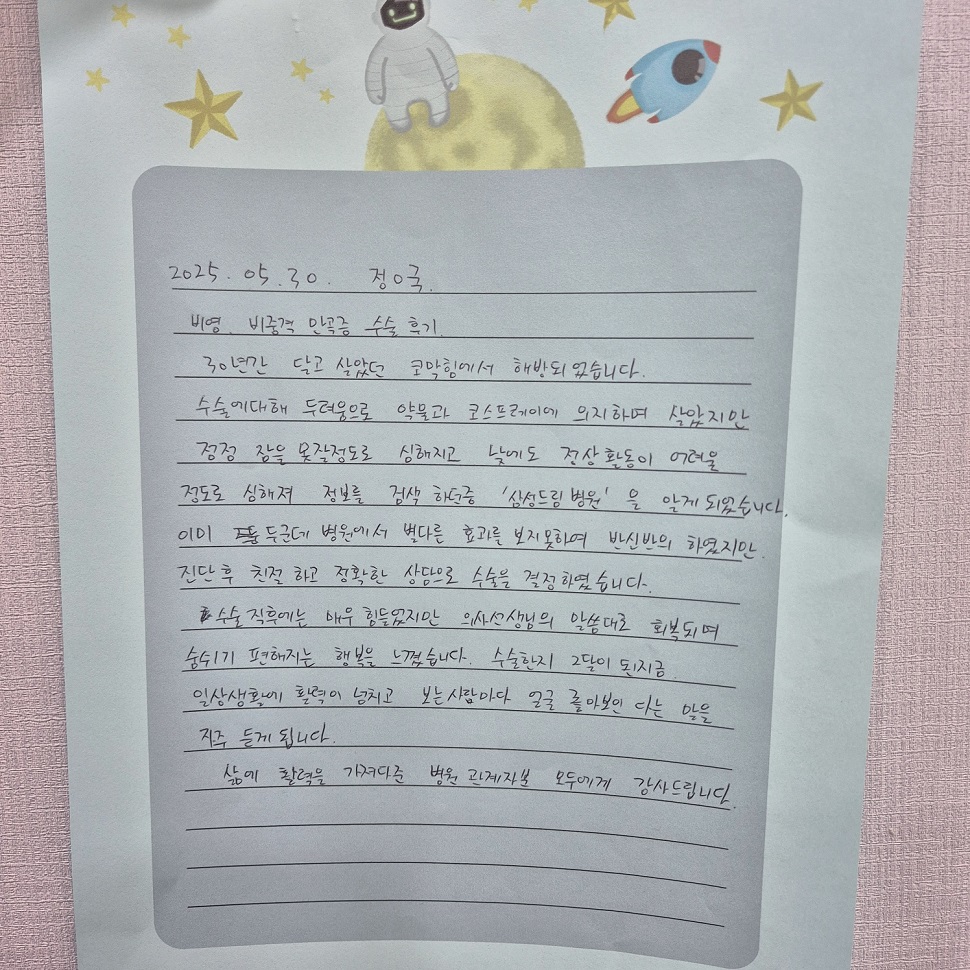 2025. 05. 30. 정O국.
비염. 비중격 만곡증 수술 후기.
30년간 달고 살았던 코막힘에서 해방되었습니다.
수술에대해 두려움으로 약물과 코스프레이에 의지하며 살았지만
점점 잠을 못잘정도로 심해지고 낮에도 정상 활동이 어려울
정도로 심해져 정보를 검색 하던중 '삼성드림병원' 을 알게 되었습니다.
이미 두군데 병원에서 별다른 효과를 보지못하여 반신반의 하였지만.
진단 후 친절 하고 정확한 상담으로 수술을 결정하였습니다.
수술 직후에는 매우 힘들었지만 의사선생님의 말씀대로 회복되며
숨쉬기 편해지는 행복을 느꼈습니다. 수술한지 2달이 된지금.
일상생활에 활력이 넘치고 보는사람마다 얼굴 좋아보인 다는 말을
자주 듣게 됩니다.
삶에 활력을 가져다준 병원 관계자분 모두에게 감사드립니다.